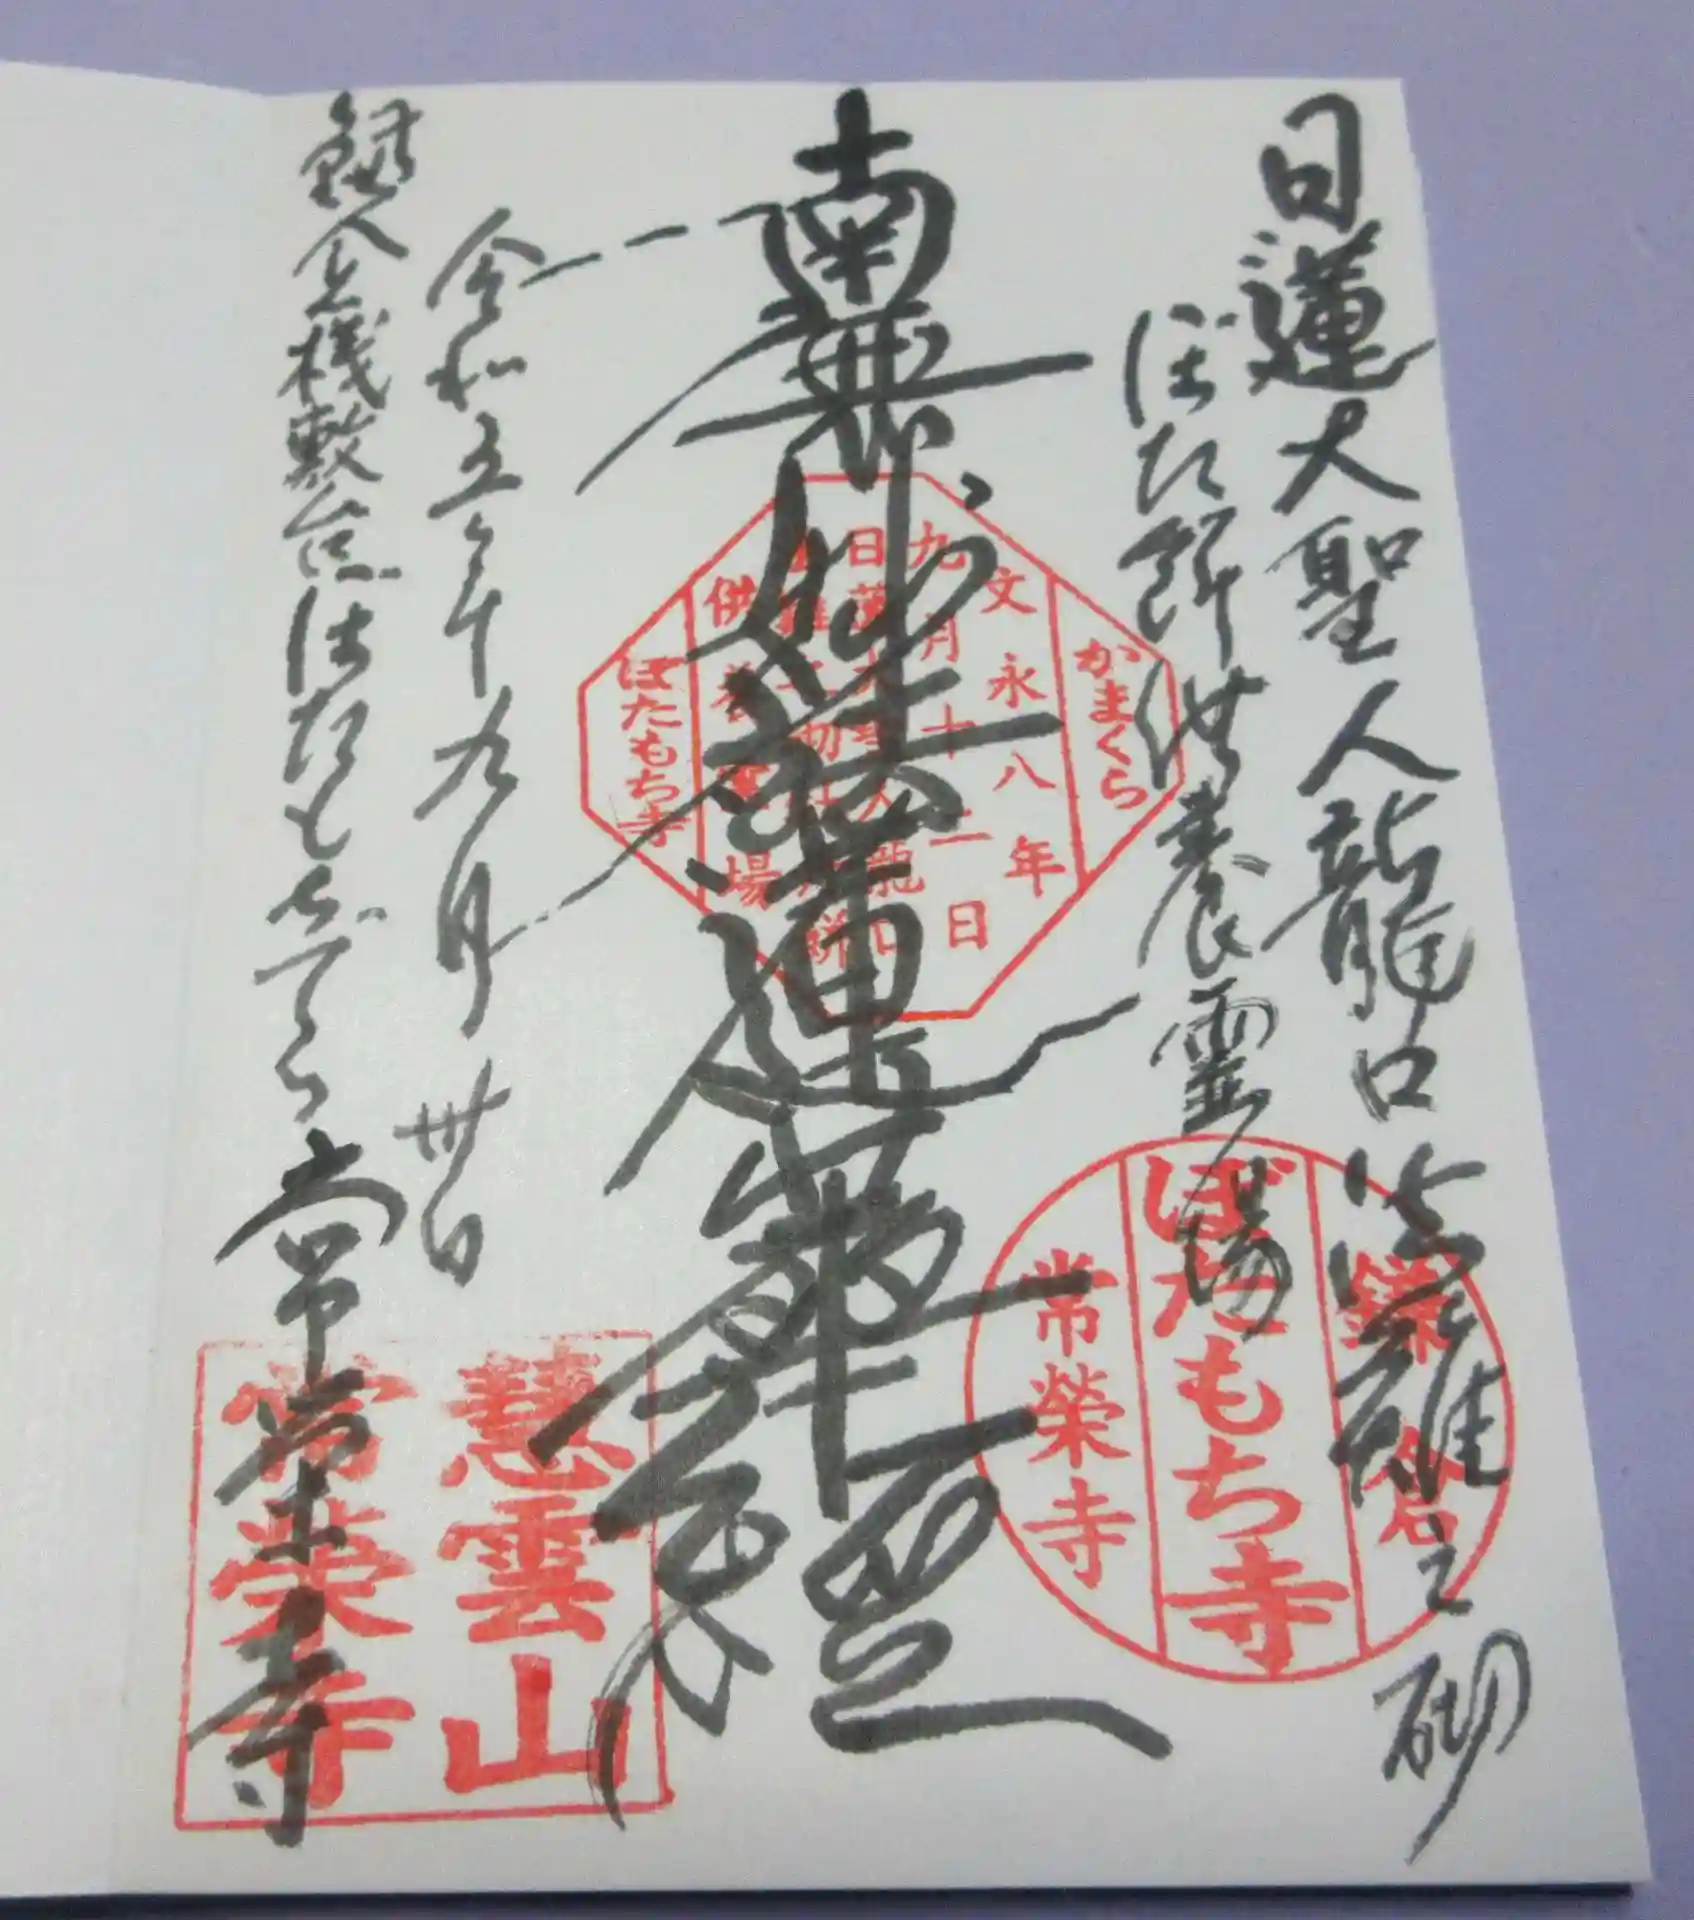 日蓮大聖人龍口法難之砌
ぼた餅供養霊場
南無妙法蓮華経
令和五年九月卅日
鎌倉桟敷台ぼたもちでら常栄寺
かまくら
文永八年
九月十二日
日蓮大聖人龍口
供養霊場
ぼたもち寺
鎌倉
ぼたもち寺
常榮寺
慧雲山
常栄寺